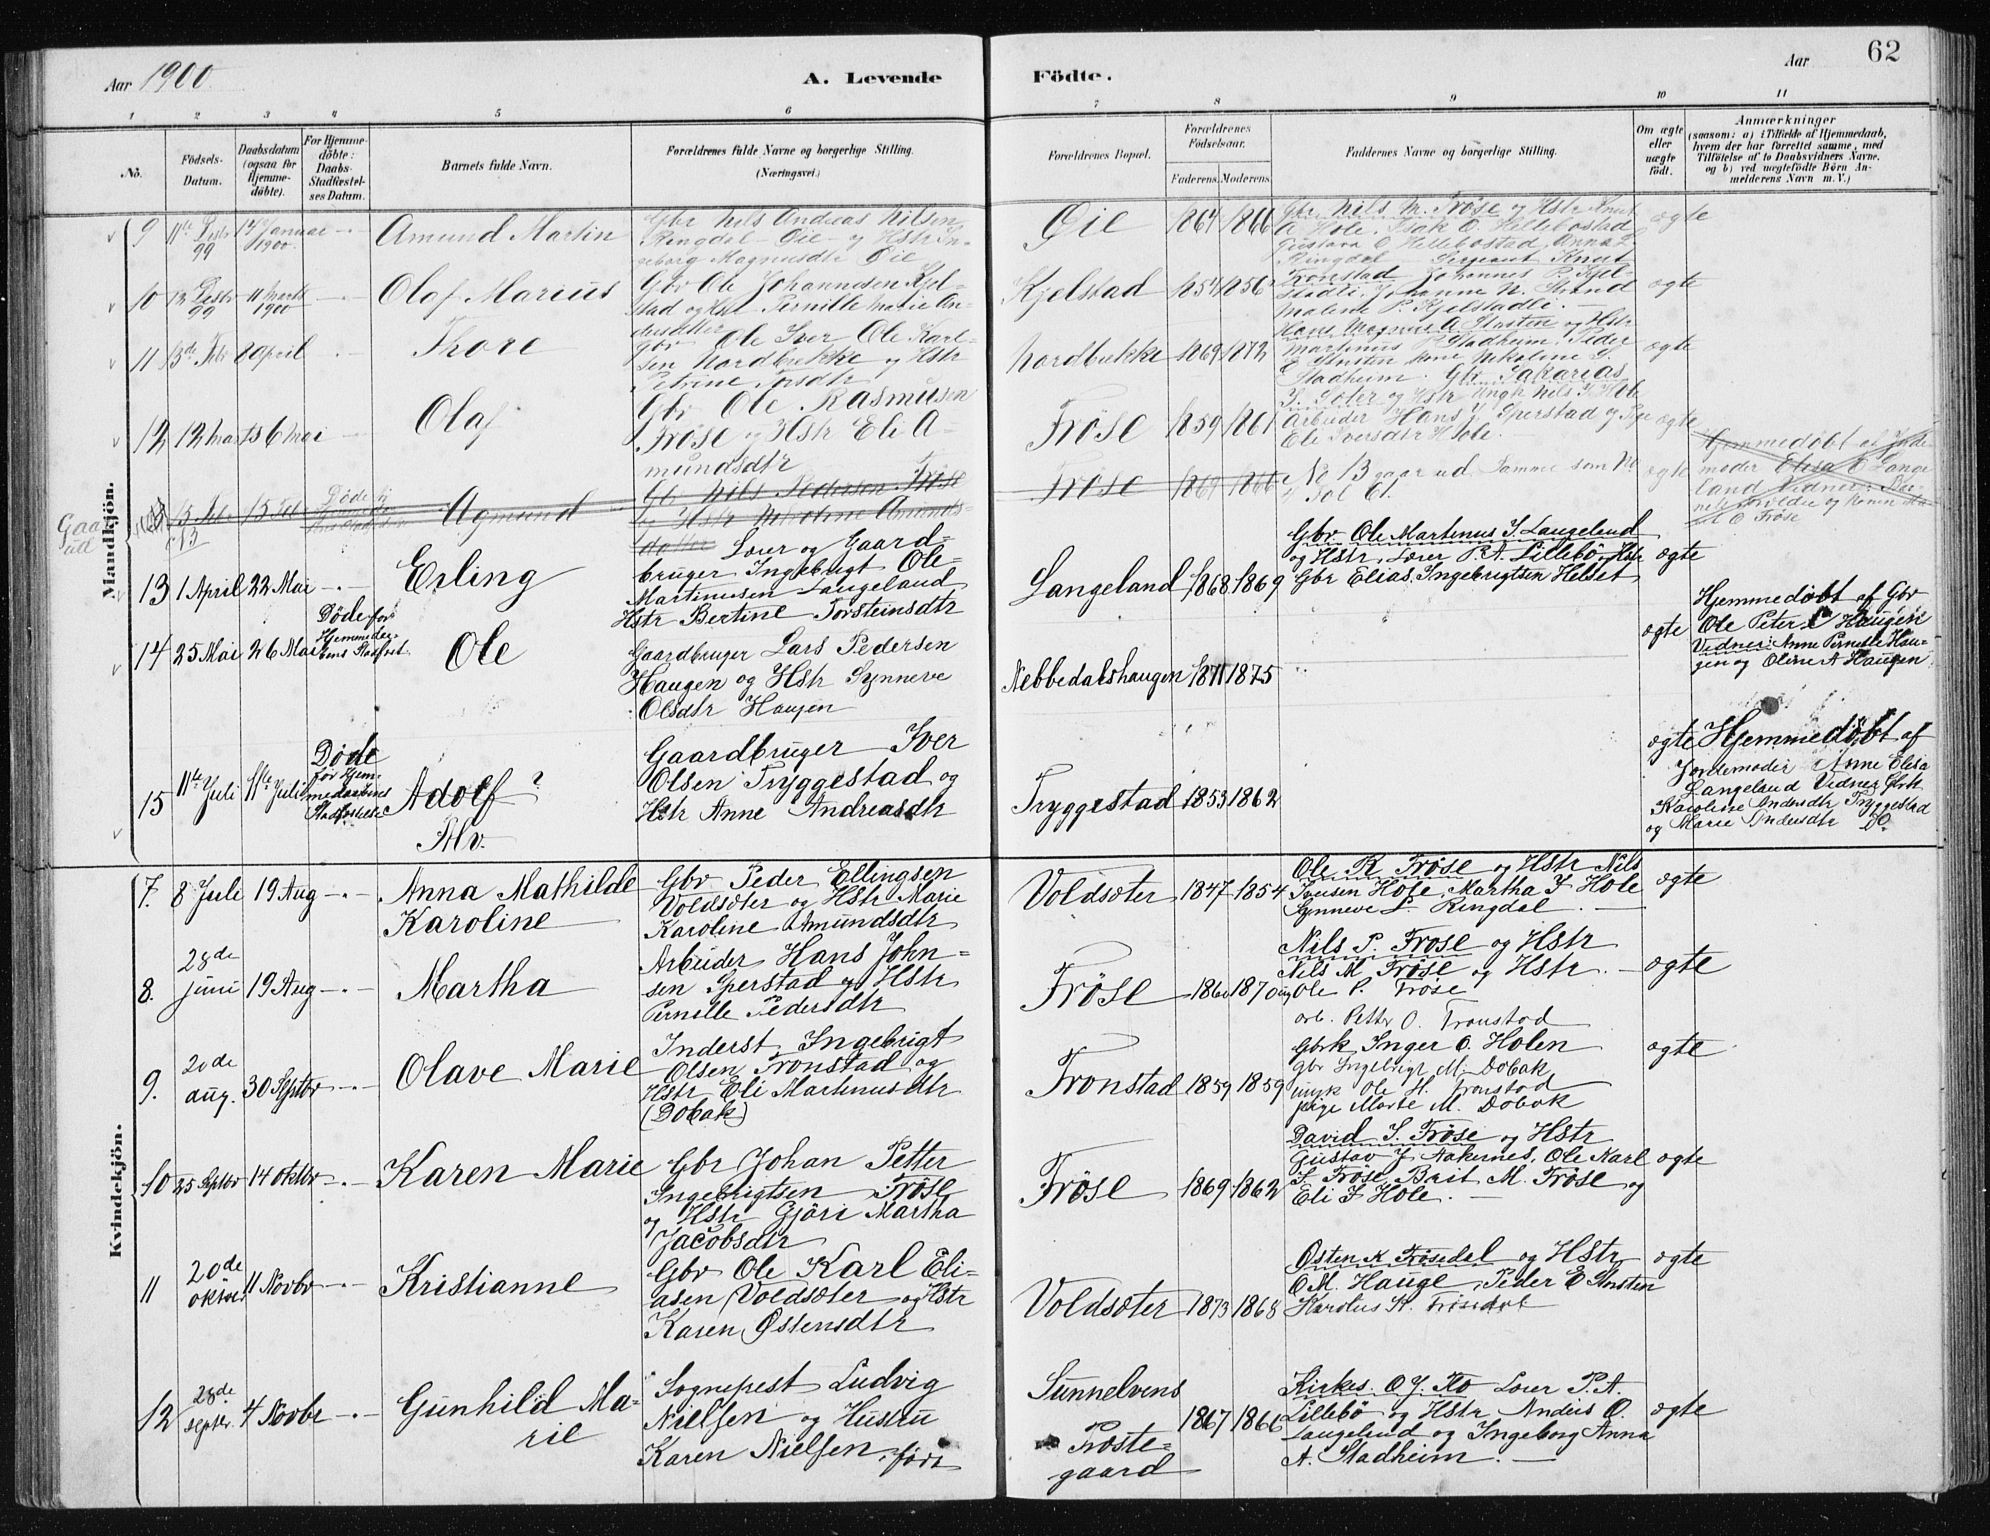 Aar 1900. A. Levende Födte. Aar 62
1 2 3 4 5 6 7 8 9 10 11
Nö. Födsels-Datum. Daabsdatum (ogsaa for Hjemme-döbte). For Hjemme-döbte: Daabs-Stadfæstel-ses Datum. Barnets fulde Navn. Forældrenes fulde Navne og borgerlige Stilling. (Næringsvei.) Forældrenes Bopæl. Forældrenes Födselsaar. Faderens. Moderens. Faddernes Navne og borgerlige Stilling. Om ægte eller uægte födt. Anmærkninger (saasom: a) i Tilfælde af Hjemmedaab, hvem der har forrettet samme, med Tilföielse af to Daabsvidners Navne, og b) ved uægtefödte Børn An-melderens Navn m. V.)
Mandkjön.
9 11te Decbr 99 Januar 1900 Amund Martin
Gbr Nils Andreas Nilsen
Ringdal Øie og Hstr In-
geborg Magnusdtr Øie
Øie 1864 1866
Gbr Nils M. Frøse og Hstr Knut
A Hole, Isak O. Hellebostad
Gustava O Hellebostad, Anna
Ringdal
ægte
10 13 Decbr 99 11 Marts 1900 Olaf Marius
Gbr Ole Johannesen Kjel-
stad og Hstr Pernille Marie An-
dersdtter
Kjelstad 1854 1856
Sergeant Knut
Tronstad Johannes P. Kjel-
stadli, Johanne N. Strand
Malene P. Kjelstadli.
ægte
11 8 April Thore
Gbr Ole Iver Ole Karl-
sen Nordbrekke og Hstr
Petrine
Nordbrekke 1869 1872
Hans Magnus A Stusten og Hstr
Martinus P Stadheim, Peder
E Stusten Nikoline S.
Stadheim.
ægte
12 12 Marts 6 Mai Olaf
Gbr Ole Rasmusen
Frøse og Hstr Eli A-
mundsdtr
Fröse 1859 1861
Gbr Sakarias
Nils J Hole
Arbeider Hans J. Sperstad og
Eli Iversdtr Hole.
ægte
Gaar ud 13 Feb 15 Feb Agmund
Gbr Nils Pedersen Fröse
Hstr
dotter
Fröse
No 13 gaar ud. Samme som No
ægte
Hjemmedöbt af Jorde-
moder Elisa E Lange-
land Vidner: Bar-
nets
Frøse
13 1 April 22 Mai Erling
Lærer og Gaard-
bruger Ingebrigt Ole-
Martinusen Langeland
Hstr Bertine Torsteinsdtr
Langeland 1868 1869
Gbr Ole Martinus I. Langeland
og Hstr, Lærer P. A. Lillebö og Hstr
Gbr Elias Ingebrigtsen Helset
ægte
14 25 Mai 26 Mai Döde før Hjemmeda-bens Stadfæst. Ole
Gaardbruger Lars Pedersen
Haugen og Hstr Synneve
Olsdtr Haugen
Nebbedalshaugen 1871 1875
ægte
Hjemmedöbt af Gbr
Ole Peter Haugen
Vidner: Anne Pernille Hau-
gen og Oline A Haugen
15 11te Juli 11te Juli Döde før Hjem-medaabens Stadfæstelse Adolf ?
Alv.
Gaardbruger Iver
Olsen Tryggestad og
Hstr Anne Andreasdtr
Tryggestad 1853 1862
ægte
Hjemmedöbt af
Jordemoder Anne Elisa
Langeland Vidner
Karoline Andersdtr Tryggestad
og Marie Andersdtr Do.
Kvindekjön.
7. 8 Juli 19 Aug Anna Mathilde
Karoline
Gbr Peder Ellingsen
Voldsæter og Hstr Marie
Karoline Amundsdtr
Voldsæter 1847 1854
Ole K Fröse og Hstr Nils
Iversen Hole, Martha I Hole
Synneve L. Ringdal.
ægte
8. 28de juni 19 Aug Martha
Arbeider Hans John-
sen Sperstad og Hstr
Pernille Pedersdtr
Fröse 1860 1870
Nils P. Frøse og Hstr
Nils M Fröse og Hstr.
Ole P. Frøse
ægte
9. 20de aug. 30 Septbr Olave Marie
Inderst Ingebrigt
Olsen Tronstad og
Hstr Eli Martinusdtr
(Dobak)
Tronstad 1859 1859
arb. Petter O. Tronstad
Gbrk Inger O. Holen
Gbr Ingebrigt M. Dobak
ungk Ole H. Tronstad
pige Marte M. Dobak
ægte
10 25 Septbr 14 Oktbr Karen Marie
Gbr Johan Petter
Ingebrigtsen Fröse
og Hstr Gjöri Martha
Jacobsdtr
Fröse 1869 1862
David S. Fröse og Hstr
Gustav J Aakernes, Ole Karl
I. Fröse, Brit M. Fröse og
Eli I Hole.
ægte
11 20de oktbr 11 Novbr Kristianne
Gbr Ole Karl Eli-
asen Voldsæter og Hstr
Karen Østensdtr
Voldsæter 1873 1868
Østen K Frøsedal og Hstr
O M. Hauge, Peder E Stusten
Karolus A. Frøsedal
ægte
12 28de septbr. 4 Novbr Gunhild Ma-
rie
Sognepest Ludvig
Nielsen og Hustru
Karen Nielsen, født
Sunnelvens
Præste-
gaard
1867 1866
Kirkes. O. J. Flo Lærer P. A.
Lillebö og Hstr Anders O.
Langeland og Ingeborg Anna
A. Stadheim.
ægte